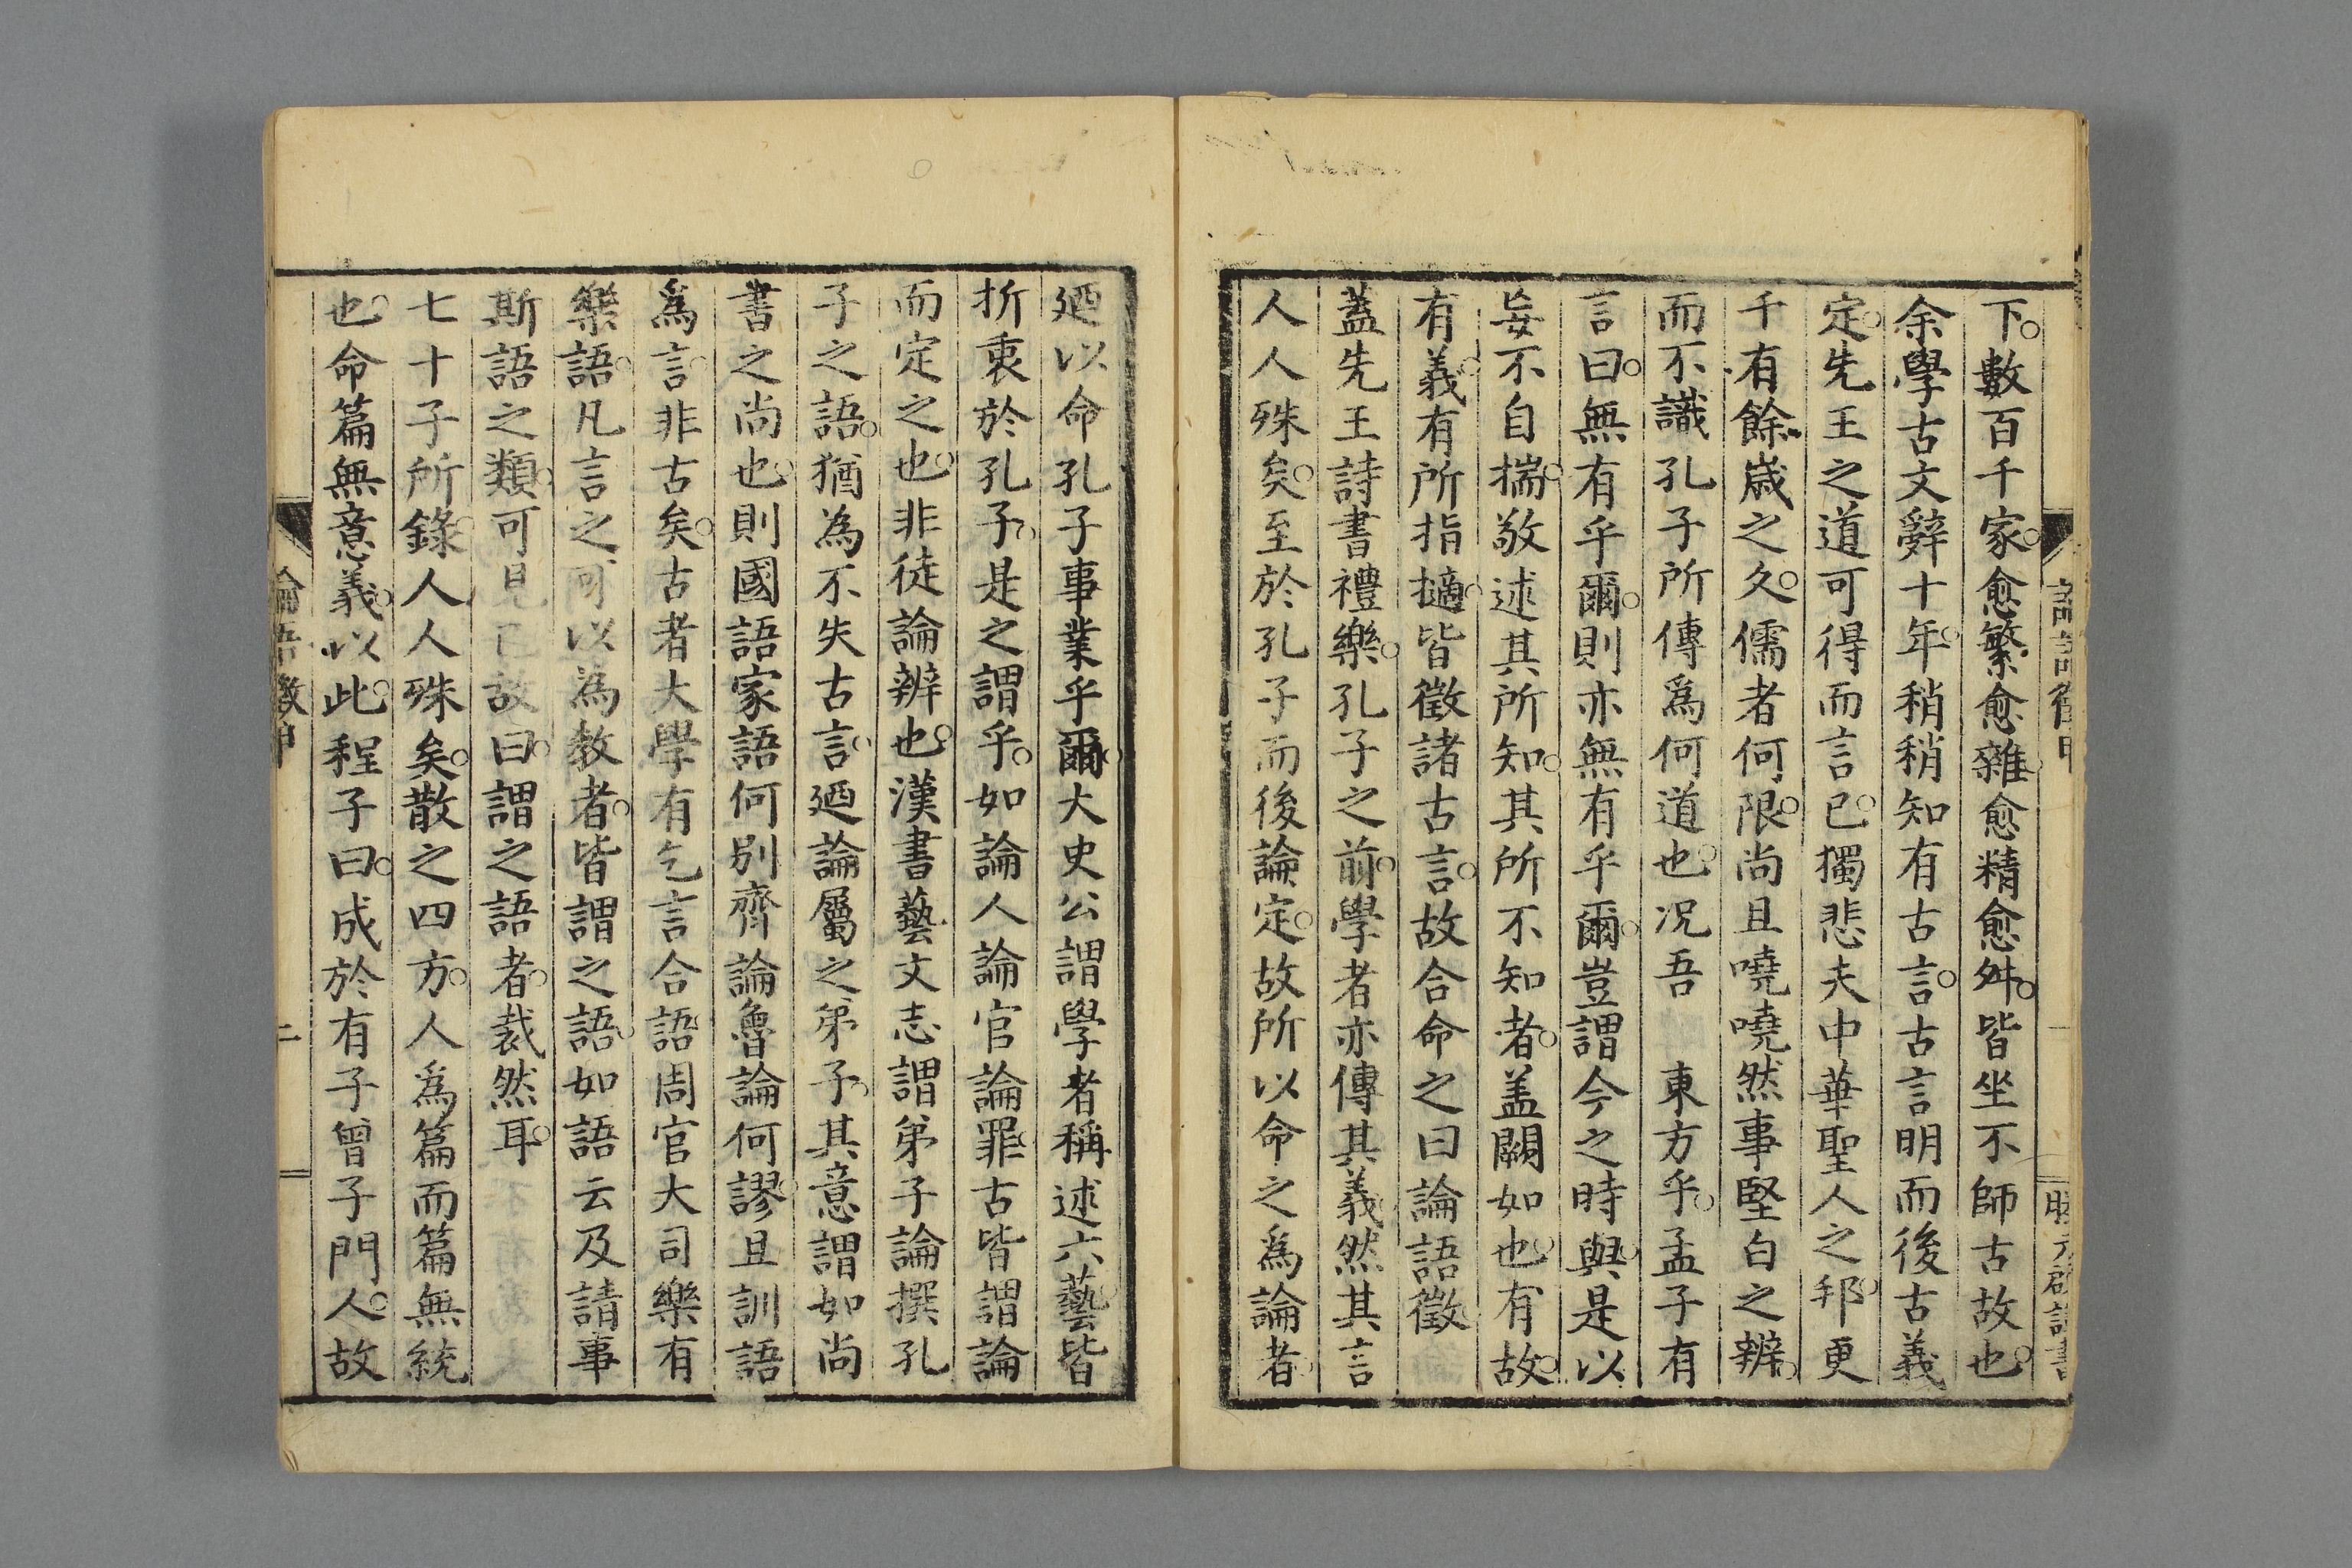 下。數百千家。愈繁愈雜。愈精愈舛。皆坐不師古故也。
余學古文辭十年。稍稍知有古言。古言明而後古義
定。先王之道可得而言已。獨悲夫中華聖人之邦。更
千有餘歲之久。儒者何限。尚且嘵嘵然事堅白之辨。
而不識孔子所傳爲何道也。况吾 東方乎。孟子有
言曰。無有乎爾。則亦無有乎爾。豈謂今之時與。是以
妄不自揣。敬述其所知。其所不知者。盖闕如也。有故。
有義。有所指摘。皆徵諸古言。故合命之曰論語徵
蓋先王詩書禮樂。孔子之前。學者亦傳其義。然其言
人人殊矣。至於孔子而後論定。故所以命之爲論者。
廼以命孔子事業乎爾。大史公謂學者稱述六藝。皆
折衷於孔子。是之謂乎。如論人論官論罪。古皆謂論
而定之也。非徒論辨也。漢書藝文志謂弟子論撰孔
子之語。猶為不失古言。廼論屬之弟子。其意謂如尚
書之尚也。則國語家語何別。齊論魯論何謬。且訓語
為言。非古矣。古者大學有乞言合語。周官大司樂有
樂語。凡言之可以為教者。皆謂之語。如語云及請事
斯語之類。可見已。故曰。謂之語者。裁然耳。
七十子所錄。人人殊矣。散之四方。人爲篇而篇無統
也。命篇無意義。以此。程子曰。成於有子曾子門人。故
論語徵甲
二